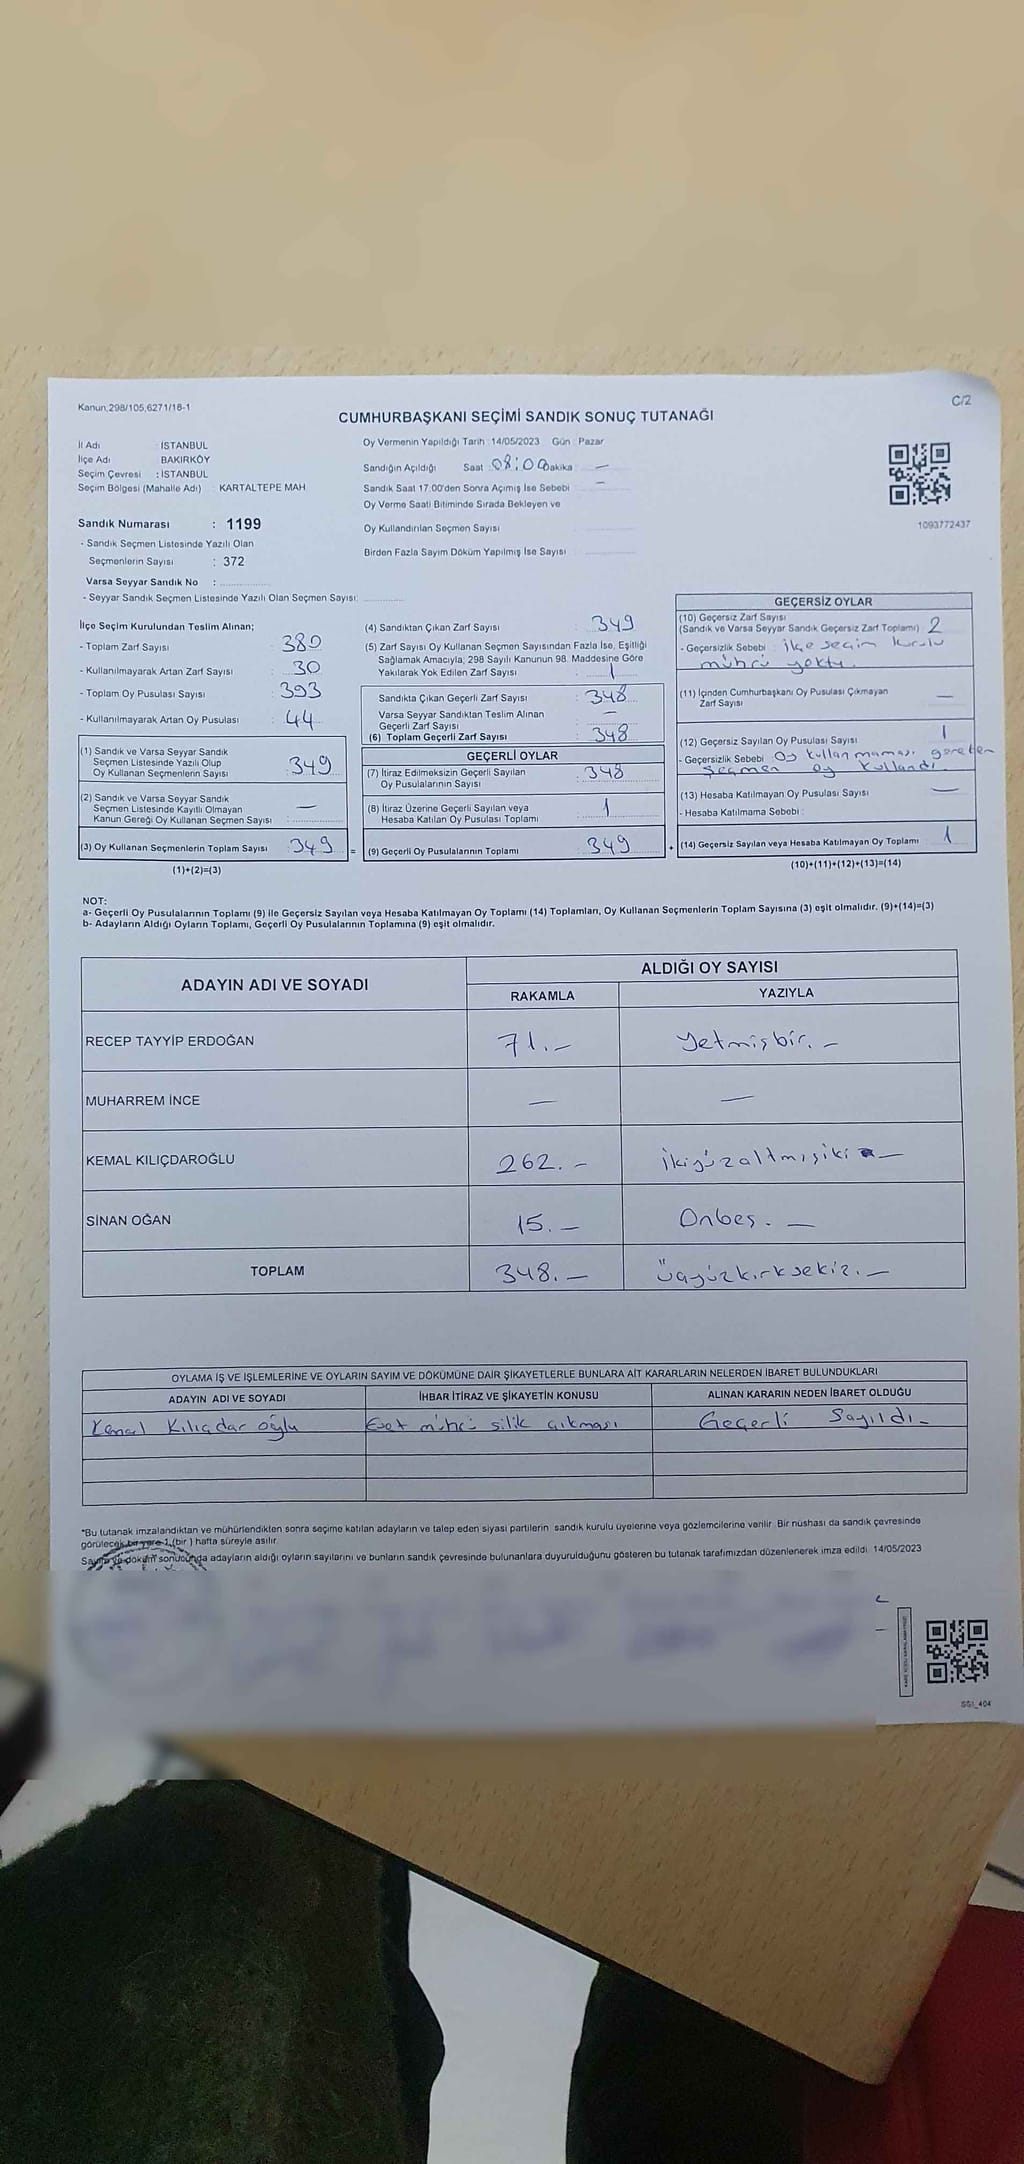 Kanun,298/105,6271/16-1
C/2
CUMHURBAŞKANI SEÇİMİ SANDIK SONUÇ TUTANAĞI
İl Adı : İSTANBUL
İlçe Adı : BAKIRKÖY
Seçim Çevresi : İSTANBUL
Seçim Bölgesi (Mahalle Adı) : KARTALTEPE MAH
Sandık Numarası : 1199
- Sandık Seçmen Listesinde Yazılı Olan
Seçmenlerin Sayısı : 372
Varsa Seyyar Sandık No :
- Seyyar Sandık Seçmen Listesinde Yazılı Olan Seçmen Sayısı:
Oy Vermenin Yapıldığı Tarih : 14/05/2023 Gün : Pazar
Sandığın Açıldığı Saat : 08:00 Dakika : —
Sandık Saat 17:00'den Sonra Açımış İse Sebebi : —
Oy Verme Saati Bitiminde Sırada Bekleyen ve
Oy Kullandırılan Seçmen Sayısı
Birden Fazla Sayım Döküm Yapılmış İse Sayısı
1093772437
İlçe Seçim Kurulundan Teslim Alınan;
- Toplam Zarf Sayısı : 380
- Kullanılmayarak Artan Zarf Sayısı : 30
- Toplam Oy Pusulası Sayısı : 393
- Kullanılmayarak Artan Oy Pusulası : 44
(1) Sandık ve Varsa Seyyar Sandık
Seçmen Listesinde Yazılı Olup
Oy Kullanan Seçmenlerin Sayısı : 349
(2) Sandık ve Varsa Seyyar Sandık
Seçmen Listesinde Kayıtlı Olmayan
Kanun Gereği Oy Kullanan Seçmen Sayısı : —
(3) Oy Kullanan Seçmenlerin Toplam Sayısı : 349 =
(1)+(2)=(3)
(4) Sandıktan Çıkan Zarf Sayısı : 349
(5) Zarf Sayısı Oy Kullanan Seçmen Sayısından Fazla İse, Eşitliği
Sağlamak Amacıyla; 298 Sayılı Kanunun 98. Maddesine Göre
Yakılarak Yok Edilen Zarf Sayısı : 1
Sandıkta Çıkan Geçerli Zarf Sayısı : 348
Varsa Seyyar Sandıktan Teslim Alınan
Geçerli Zarf Sayısı : —
(6) Toplam Geçerli Zarf Sayısı : 348
GEÇERLİ OYLAR
(7) İtiraz Edilmeksizin Geçerli Sayılan
Oy Pusulalarının Sayısı : 348
(8) İtiraz Üzerine Geçerli Sayılan veya
Hesaba Katılan Oy Pusulası Toplamı : 1
(9) Geçerli Oy Pusulalarının Toplamı : 349 +
GEÇERSİZ OYLAR
(10) Geçersiz Zarf Sayısı
(Sandık ve Varsa Seyyar Sandık Geçersiz Zarf Toplamı) : 2
- Geçersizlik Sebebi : ilçe seçim kurulu
mührü yoktu.
(11) İçinden Cumhurbaşkanı Oy Pusulası Çıkmayan
Zarf Sayısı : —
(12) Geçersiz Sayılan Oy Pusulası Sayısı : 1
- Geçersizlik Sebebi : Oy kullanmaması gereken
seçmen oy kullandı.
(13) Hesaba Katılmayan Oy Pusulası Sayısı : —
- Hesaba Katılmama Sebebi :
(14) Geçersiz Sayılan veya Hesaba Katılmayan Oy Toplamı : 1
(10)+(11)+(12)+(13)=(14)
NOT:
a- Geçerli Oy Pusulalarının Toplamı (9) ile Geçersiz Sayılan veya Hesaba Katılmayan Oy Toplamı (14) Toplamları, Oy Kullanan Seçmenlerin Toplam Sayısına (3) eşit olmalıdır. (9)+(14)=(3)
b- Adayların Aldığı Oyların Toplamı, Geçerli Oy Pusulalarının Toplamına (9) eşit olmalıdır.
ADAYIN ADI VE SOYADI ALDIĞI OY SAYISI
RAKAMLA YAZIYLA
RECEP TAYYİP ERDOĞAN 71.— Yetmişbir.—
MUHARREM İNCE — —
KEMAL KILIÇDAROĞLU 262.— İkiyüzaltmışiki —
SİNAN OĞAN 15.— Onbeş.—
TOPLAM 348.— üçyüzkırksekiz.—
OYLAMA İŞ VE İŞLEMLERİNE VE OYLARIN SAYIM VE DÖKÜMÜNE DAİR ŞİKAYETLERLE BUNLARA AİT KARARLARIN NELERDEN İBARET BULUNDUKLARI
ADAYIN ADI VE SOYADI İHBAR İTİRAZ VE ŞİKAYETİN KONUSU ALINAN KARARIN NEDEN İBARET OLDUĞU
Kemal Kılıçdaroğlu Evet mührü silik çıkması Geçerli Sayıldı—
*Bu tutanak imzalandıktan ve mühürlendikten sonra seçime katılan adayların ve talep eden siyasi partilerin sandık kurulu üyelerine veya gözlemcilerine verilir. Bir nüshası da sandık çevresinde
görülecek bir yere 1 (bir ) hafta süreyle asılır.
Sayım ve döküm sonucunda adayların aldığı oyların sayılarını ve bunların sandık çevresinde bulunanlara duyurulduğunu gösteren bu tutanak tarafımızdan düzenlenerek imza edildi. 14/05/2023
SS1_404